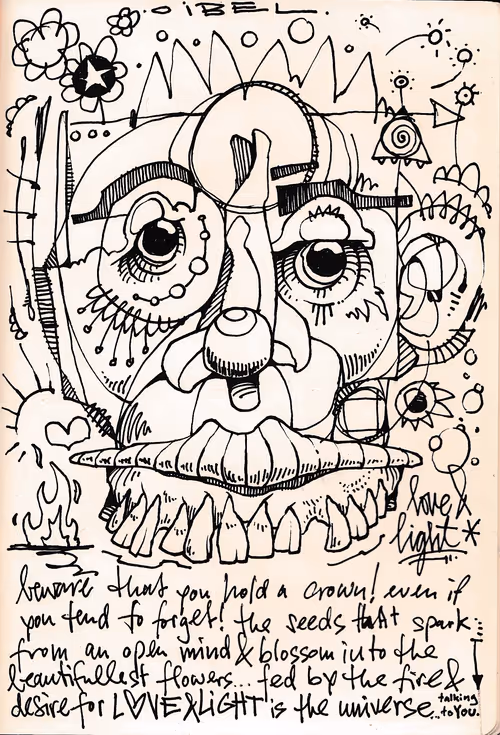 OIBEL
love &
light*
beware that you hold a crown! even if
you tend to forget! the seeds that spark...
from an open mind & blossom into the
beautifullest flowers... fed by the fire &
desire for LOVE&LIGHT is the universe...
talking
to You.